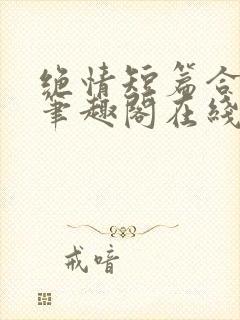 绝情短篇合
笔趣阁在线
戒喑